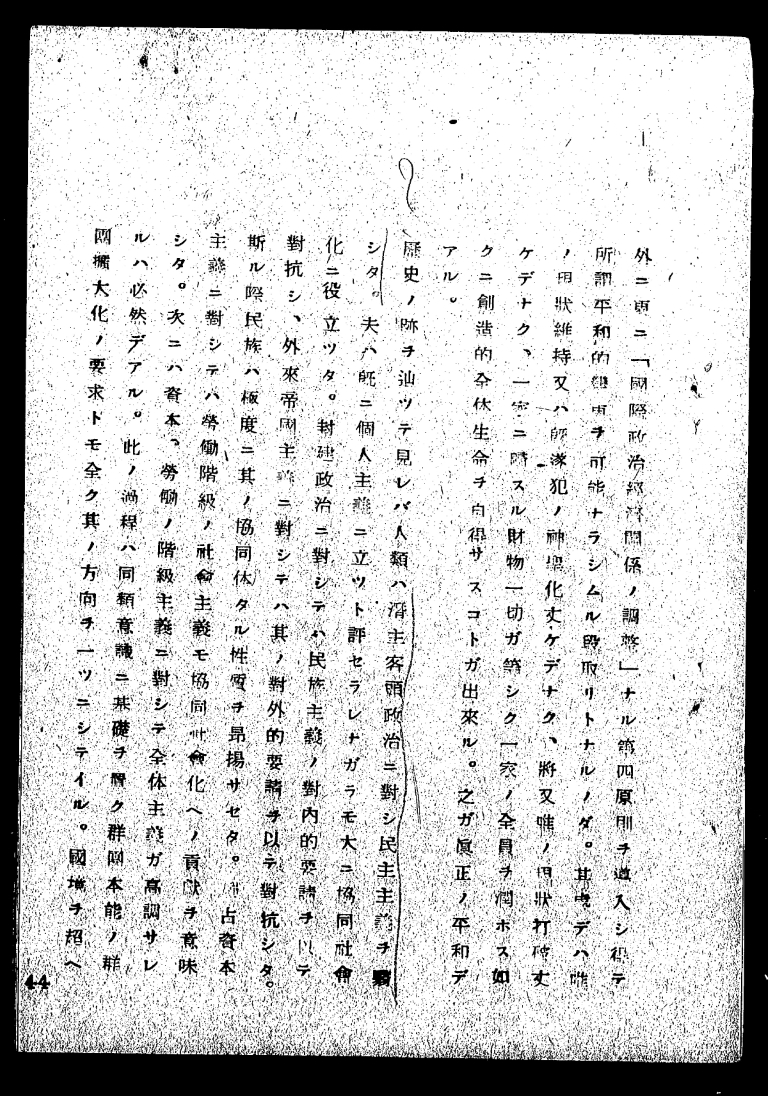 外ニ更ニ「國際政治經濟關係ノ調整」ナル第四原則ヲ導入シ得テ
所謂平和的變更ヲ可能ナラシムル段取リトナルノダ。其處デハ唯
ノ現狀維持又ハ既遂犯ノ神聖化丈ケデナク、將又唯ノ現狀打破丈
ケデナク、一家ニ瞬スル財物一切ガ等シク一家ノ全員ヲ潤ホス如
クニ創造的全体生命ヲ自得サスコトガ出來ル。之ガ眞正ノ平和デ
アル。
歷史ノ跡ヲ辿ツテ見レバ人類ハ主客頭政治ニ對シ民主主義ヲ
シタ。夫ハ既ニ個人主義ニ立ツト評セラレナガラモ大ニ協同社會
化ニ役立ツタ。封建政治ニ對シテハ民族主義ノ對內的要諸ヲ以テ
對抗シ、外來帝國主義ニ對シテハ其ノ對外的要諸ヲ以テ對抗シタ。
斯ル際民族ハ極度ニ其ノ協同体タル性質ヲ昂揚サセタ。占資本
主義ニ對シテハ勞働階級ノ社會主義モ協同社會化ヘノ貢獻ヲ意味
シタ。次ニハ資本、勞働ノ階級主義ニ對シテ全体主義ガ高調サレ
ルハ必然デアル。此ノ過程ハ同類意識ニ基礎ヲ置ク群團本能ノ群
團擴大化ノ要求トモ全ク其ノ方向ヲ一ツニシテイル。國境ヲ超ヘ
44